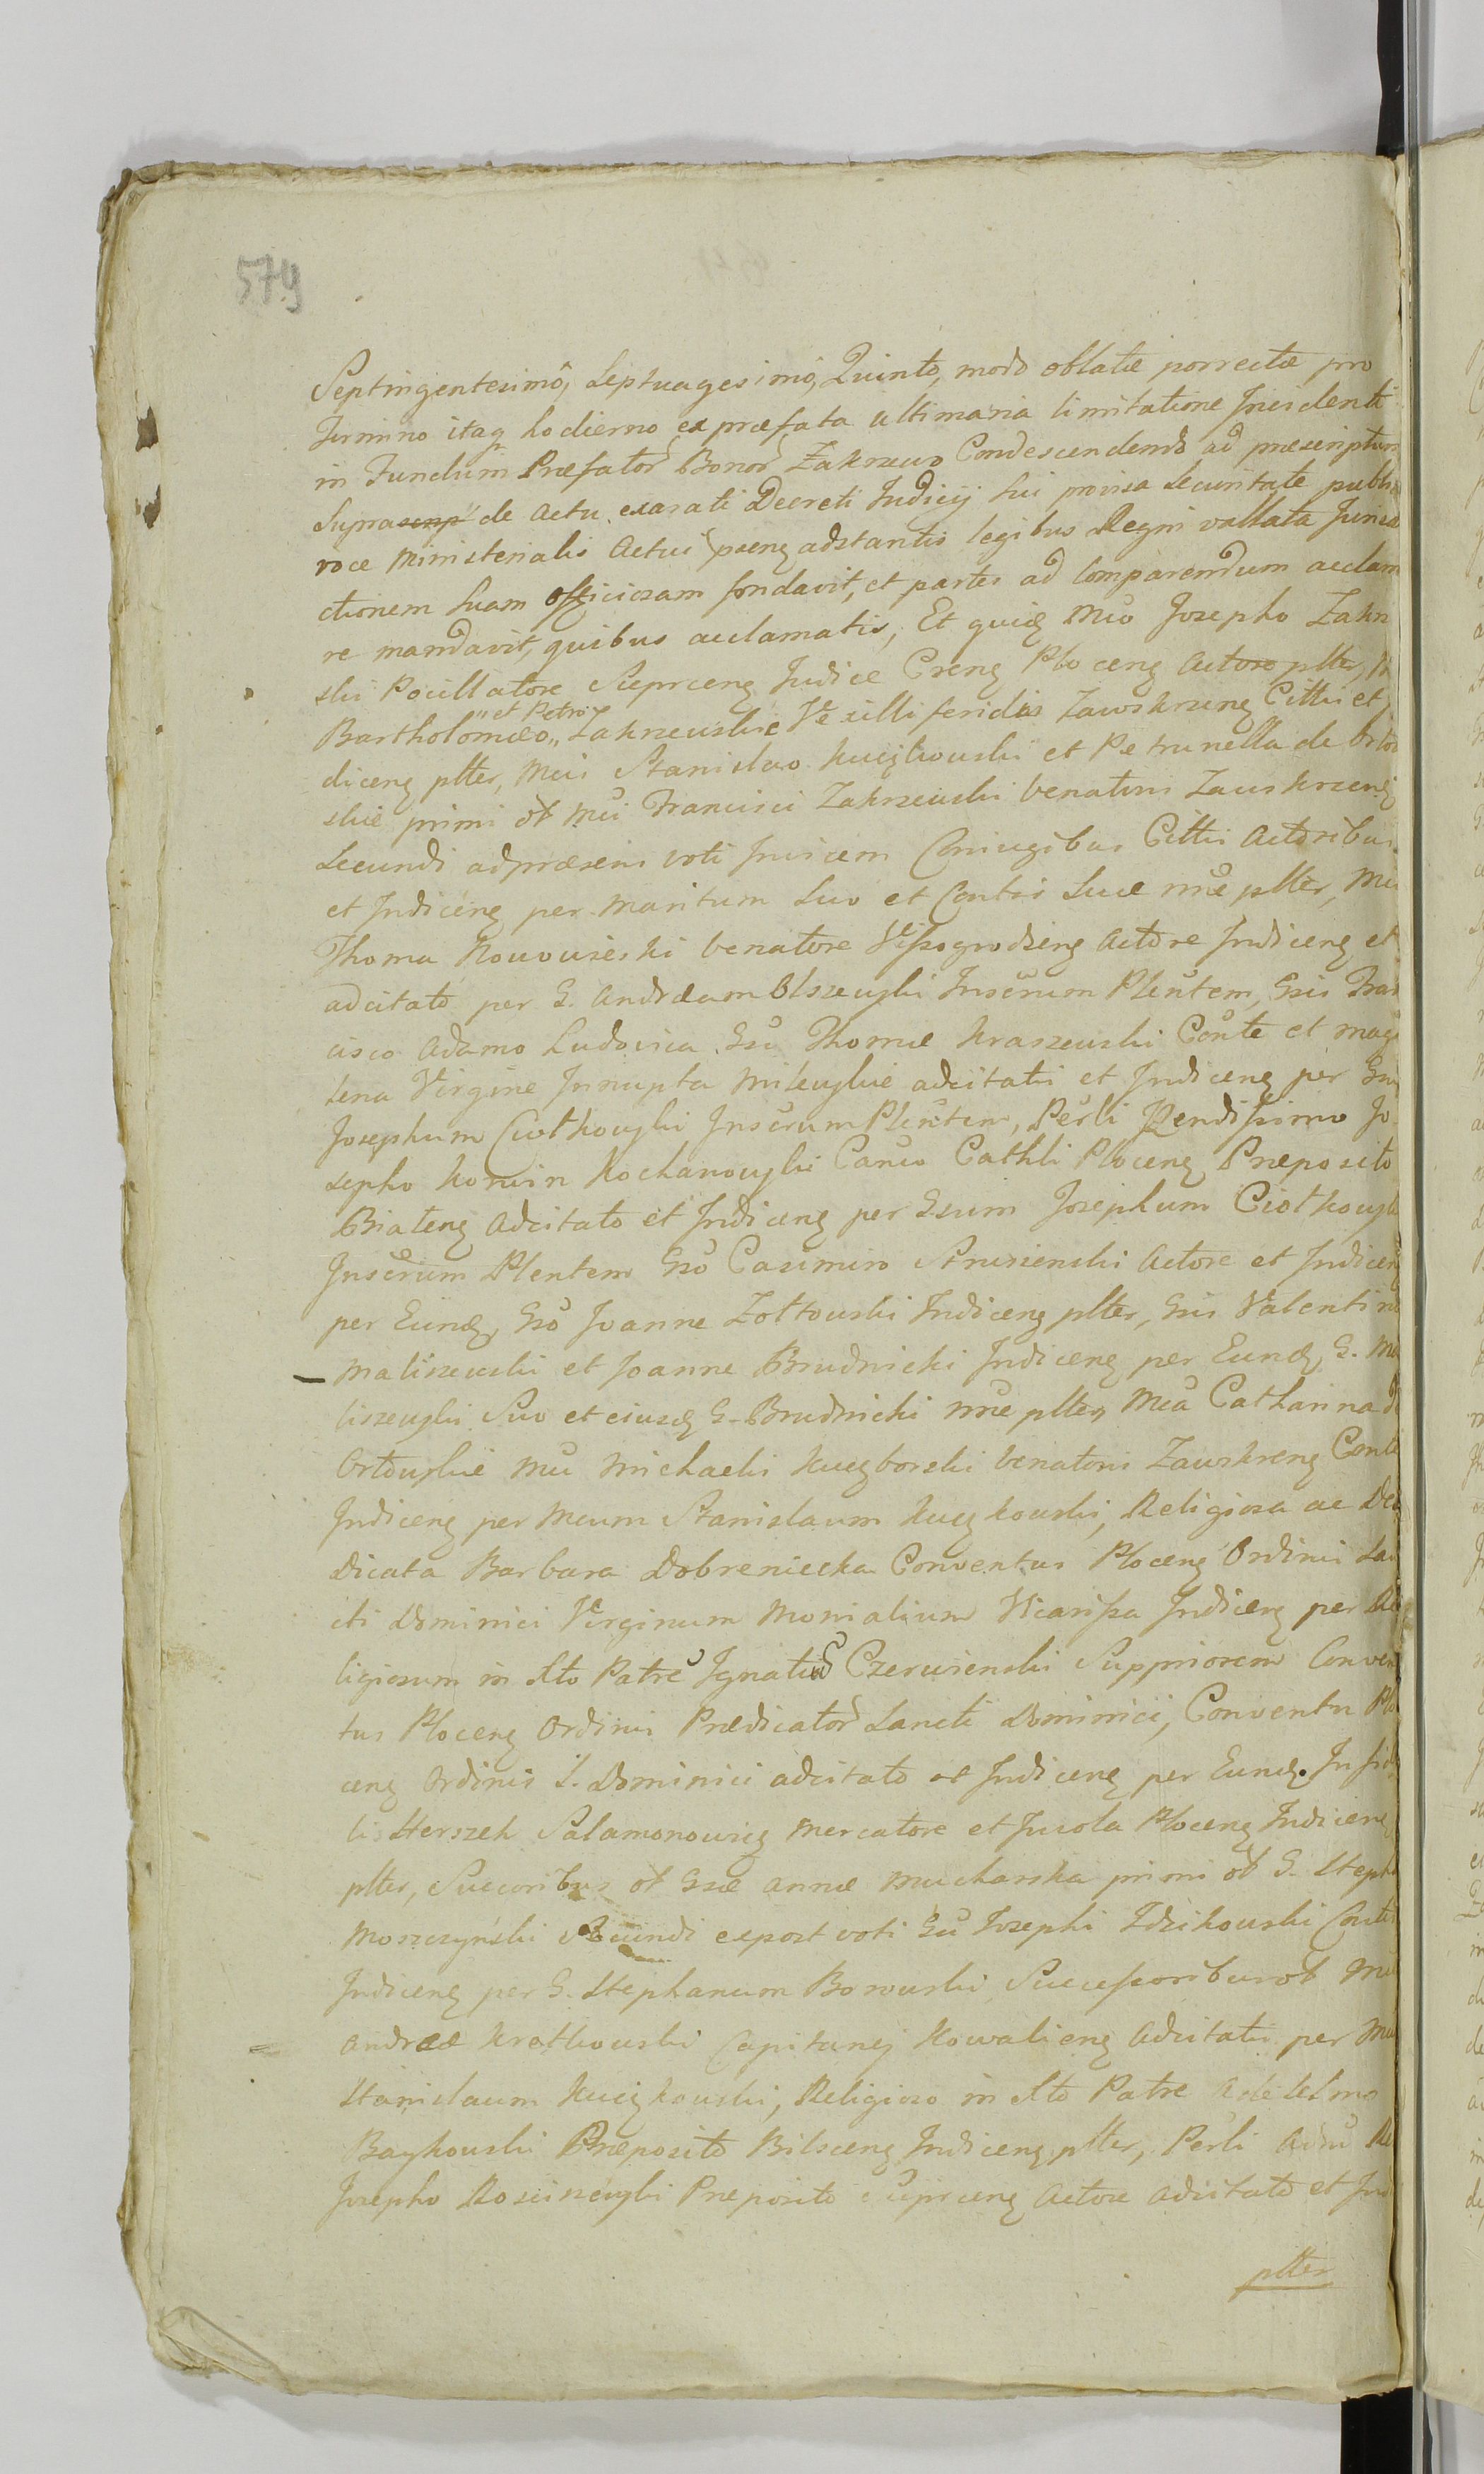 579
Septingentesimo, Septuagesimo, Quinto, modo oblatæ porrectæ pro
Termino itaq hodierno ex præfata ultimaria limitatione Incidenti
in Fundum Præfator Bonor Zakrzewo Condescendendo ad præscriptum
Supra de Actu exarati Decreti Judicij Sui provisa Securitate publi
voce Ministerialis Actui præns adstantis legibus Regni vallata Jurisd
ctionem Suam officiosam fondavit, et partes ad Comparendum acclam
re mandavit, quibus acclamatis, Et quidẽ Mco Josepho Zakrz
ski Pocillatore Sieprceng Judice Creng Ploceng Actore pltter,
Bartholomæo „et Petro„ Zakrzewskie Vexilliferidis Zawskrzeng Citti et
diceng pltter, Mcis Stanislao Kuczkowski et Petrunella de Orto
skie primi ot Mci Francisci Zakrzewski Venatoris Zawskrzeng
Secundi adpræsens voti Invicem Coniugibus Cittis Actoribus
et Indiceng per Maritum Suo et Contis Suæ nne pltter, Mco
Thoma Nowowieski Venatore Wyssogrodzeng Actore Indiceng et
adcitato per G. Andræam Olszewski Inscrum Plentem, Gsis Fran
cisco Adamo Ludovica Gsi Thomæ Kraszewski Conte et Mag
lena Virgine Innupta Milewskie adcitatis et Indiceng per Gsum
Josephum Ciołkowski Inscrum Plentem, Perli Rendissimo Jo
sepho Korwin Kochanowski Canco Cathli Ploceng Præposito
Białeng Adcitato et Indiceng per Gsum Josephum Ciołkowsk
Inscrum Plentem Gso Casimiro Strusienski Actore et Indiceng
per Eundẽ, Gso Joanne Zołtowski Indiceng pltter, Gsis Valentino
Maliszewski et Joanne Brudnicki Indiceng per Eundẽ G. Ma
liszewski Suo et eiusdẽ G. Brudnicki nne pltter, Mca Catharina d
Ortowskie Mci Michaelis Kuczborski Venatoris Zawskreng Conte
Indiceng per Mcum Stanislaum Kuczkowski, Religiosa ac De
dicata Barbara Dobreniecka Conventus Ploceng Ordinis San
cti Dominici Virginum Monialium Vicarissa Indiceng per Re
ligiosum in Xto Patre Ignatiu Czerwienski Suppriorem Conven
tus Ploceng Ordinis Prædicator Sancti Dominici, Conventu Plo
ceng Ordinis S. Dominici adcitato et Indiceng per Eundẽ. Infide
lis Herszek Salamonowicz Mercatore et Incola Ploceng Indiceng
pltter, Succoribus ot Gsæ Annæ Mucharska primi ot G. Steph
Moszczyński Secundi expost voti Gsi Josephi Zdzikowski Contis
Indiceng per G. Stephanum Borowski, Successoribus ot Mci
Andreæ Kretkowski Capitanei Kowalieng Adcitatis per Mcum
Stanislaum Kuczkowski, Religioso in Xto Patre
Baykowski Præposito Bilsceng Indiceng pltter, Perli Adm Re
Josepho Rosciszewski Præposito Sieprceng Actore Adcitato et Ind
pltter